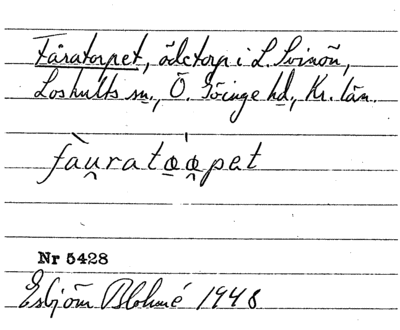 Fåratorpet, ödetorp i L. Svinön,
Loshults sn., Ö. Göinge hd., Kr. län.
fàu̯rato̤ó̤pet
Nr 5428
Esbjörn Blohmé 1948